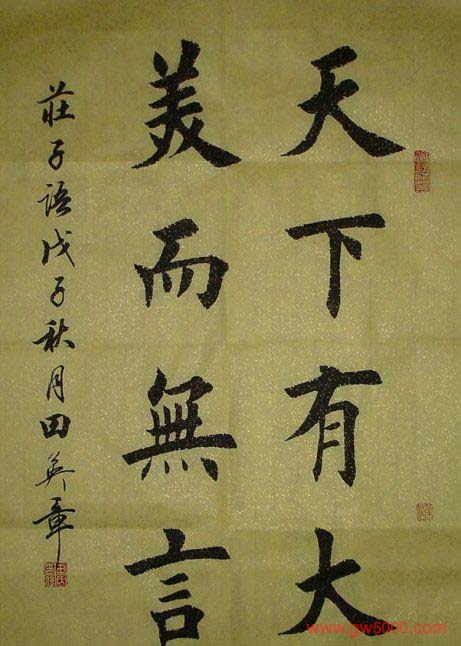 天下有大
美而無言
莊子語戊子秋月田英章
www.gw5000.com